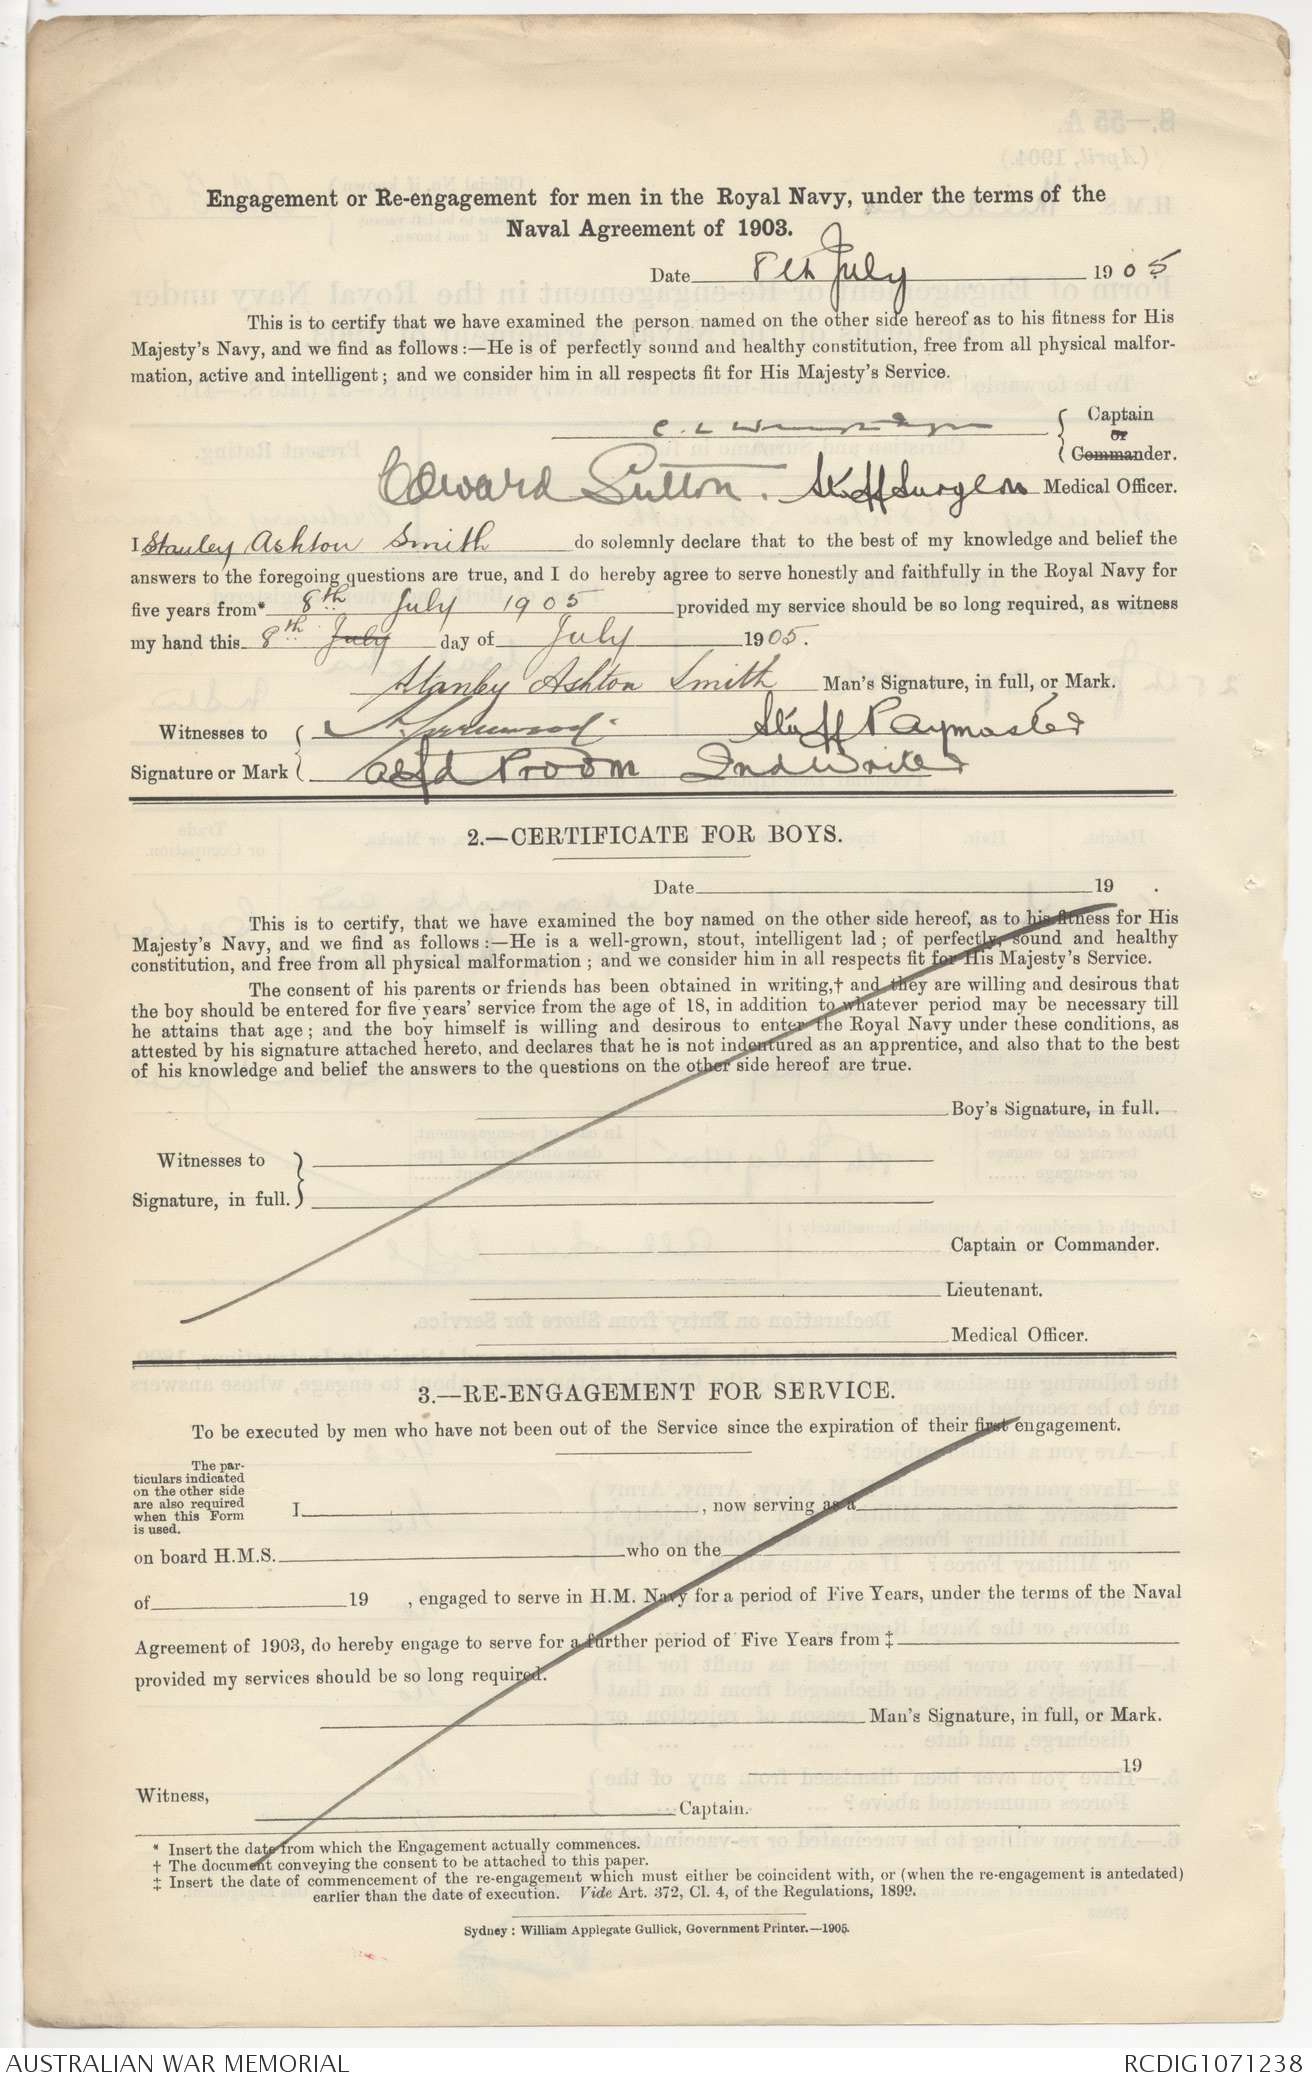 Engagement or Re-engagement for men in the Royal Navy, under the terms of the
Naval Agreement of 1903.
Date 8th July 1905
This is to certify that we have examined the person named on the other side hereof as to his fitness for His
Majesty's Navy, and we find as follows:—He is of perfectly sound and healthy constitution, free from all physical malfor-
mation, active and intelligent; and we consider him in all respects fit for His Majesty's Service.
C L Captain
or
Commander.
Edward Sutton. Staff Surgeon Medical Officer.
I Stanley Ashton Smith do solemnly declare that to the best of my knowledge and belief the
answers to the foregoing questions are true, and I do hereby agree to serve honestly and faithfully in the Royal Navy for
five years from* 8th July 1905 provided my service should be so long required, as witness
my hand this 8th July day of July 1905.
Stanley Ashton Smith Man's Signature, in full, or Mark.
Witnesses to Greenwood Staff Paymaster
Signature or Mark Alfd Proom 2nd Writer
2.—CERTIFICATE FOR BOYS.
Date 19 .
This is to certify, that we have examined the boy named on the other side hereof, as to his fitness for His
Majesty's Navy, and we find as follows:—He is a well-grown, stout, intelligent lad; of perfectly sound and healthy
constitution, and free from all physical malformation; and we consider him in all respects fit for His Majesty's Service.
The consent of his parents or friends has been obtained in writing,† and they are willing and desirous that
the boy should be entered for five years' service from the age of 18, in addition to whatever period may be necessary till
he attains that age; and the boy himself is willing and desirous to enter the Royal Navy under these conditions, as
attested by his signature attached hereto, and declares that he is not indentured as an apprentice, and also that to the best
of his knowledge and belief the answers to the questions on the other side hereof are true.
Boy's Signature, in full.
Witnesses to
Signature, in full.
Captain or Commander.
Lieutenant.
Medical Officer.
3.—RE-ENGAGEMENT FOR SERVICE.
To be executed by men who have not been out of the Service since the expiration of their first engagement.
The par-
ticulars indicated
on the other side
are also required
when this Form
is used.
I , now serving as a
on board H.M.S. who on the
of 19 , engaged to serve in H.M. Navy for a period of Five Years, under the terms of the Naval
Agreement of 1903, do hereby engage to serve for a further period of Five Years from ‡
provided my services should be so long required.
Man's Signature, in full, or Mark.
19
Witness,
Captain.
* Insert the date from which the Engagement actually commences.
† The document conveying the consent to be attached to this paper.
‡ Insert the date of commencement of the re-engagement which must either be coincident with, or (when the re-engagement is antedated)
earlier than the date of execution. Vide Art. 372, Cl. 4, of the Regulations, 1899.
Sydney: William Applegate Gullick, Government Printer.—1905.
AUSTRALIAN WAR MEMORIAL RCDIG1071238